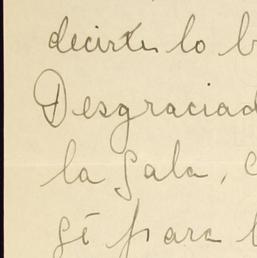 decirte lo b
Desgraciad
la Sala, c
gé para l